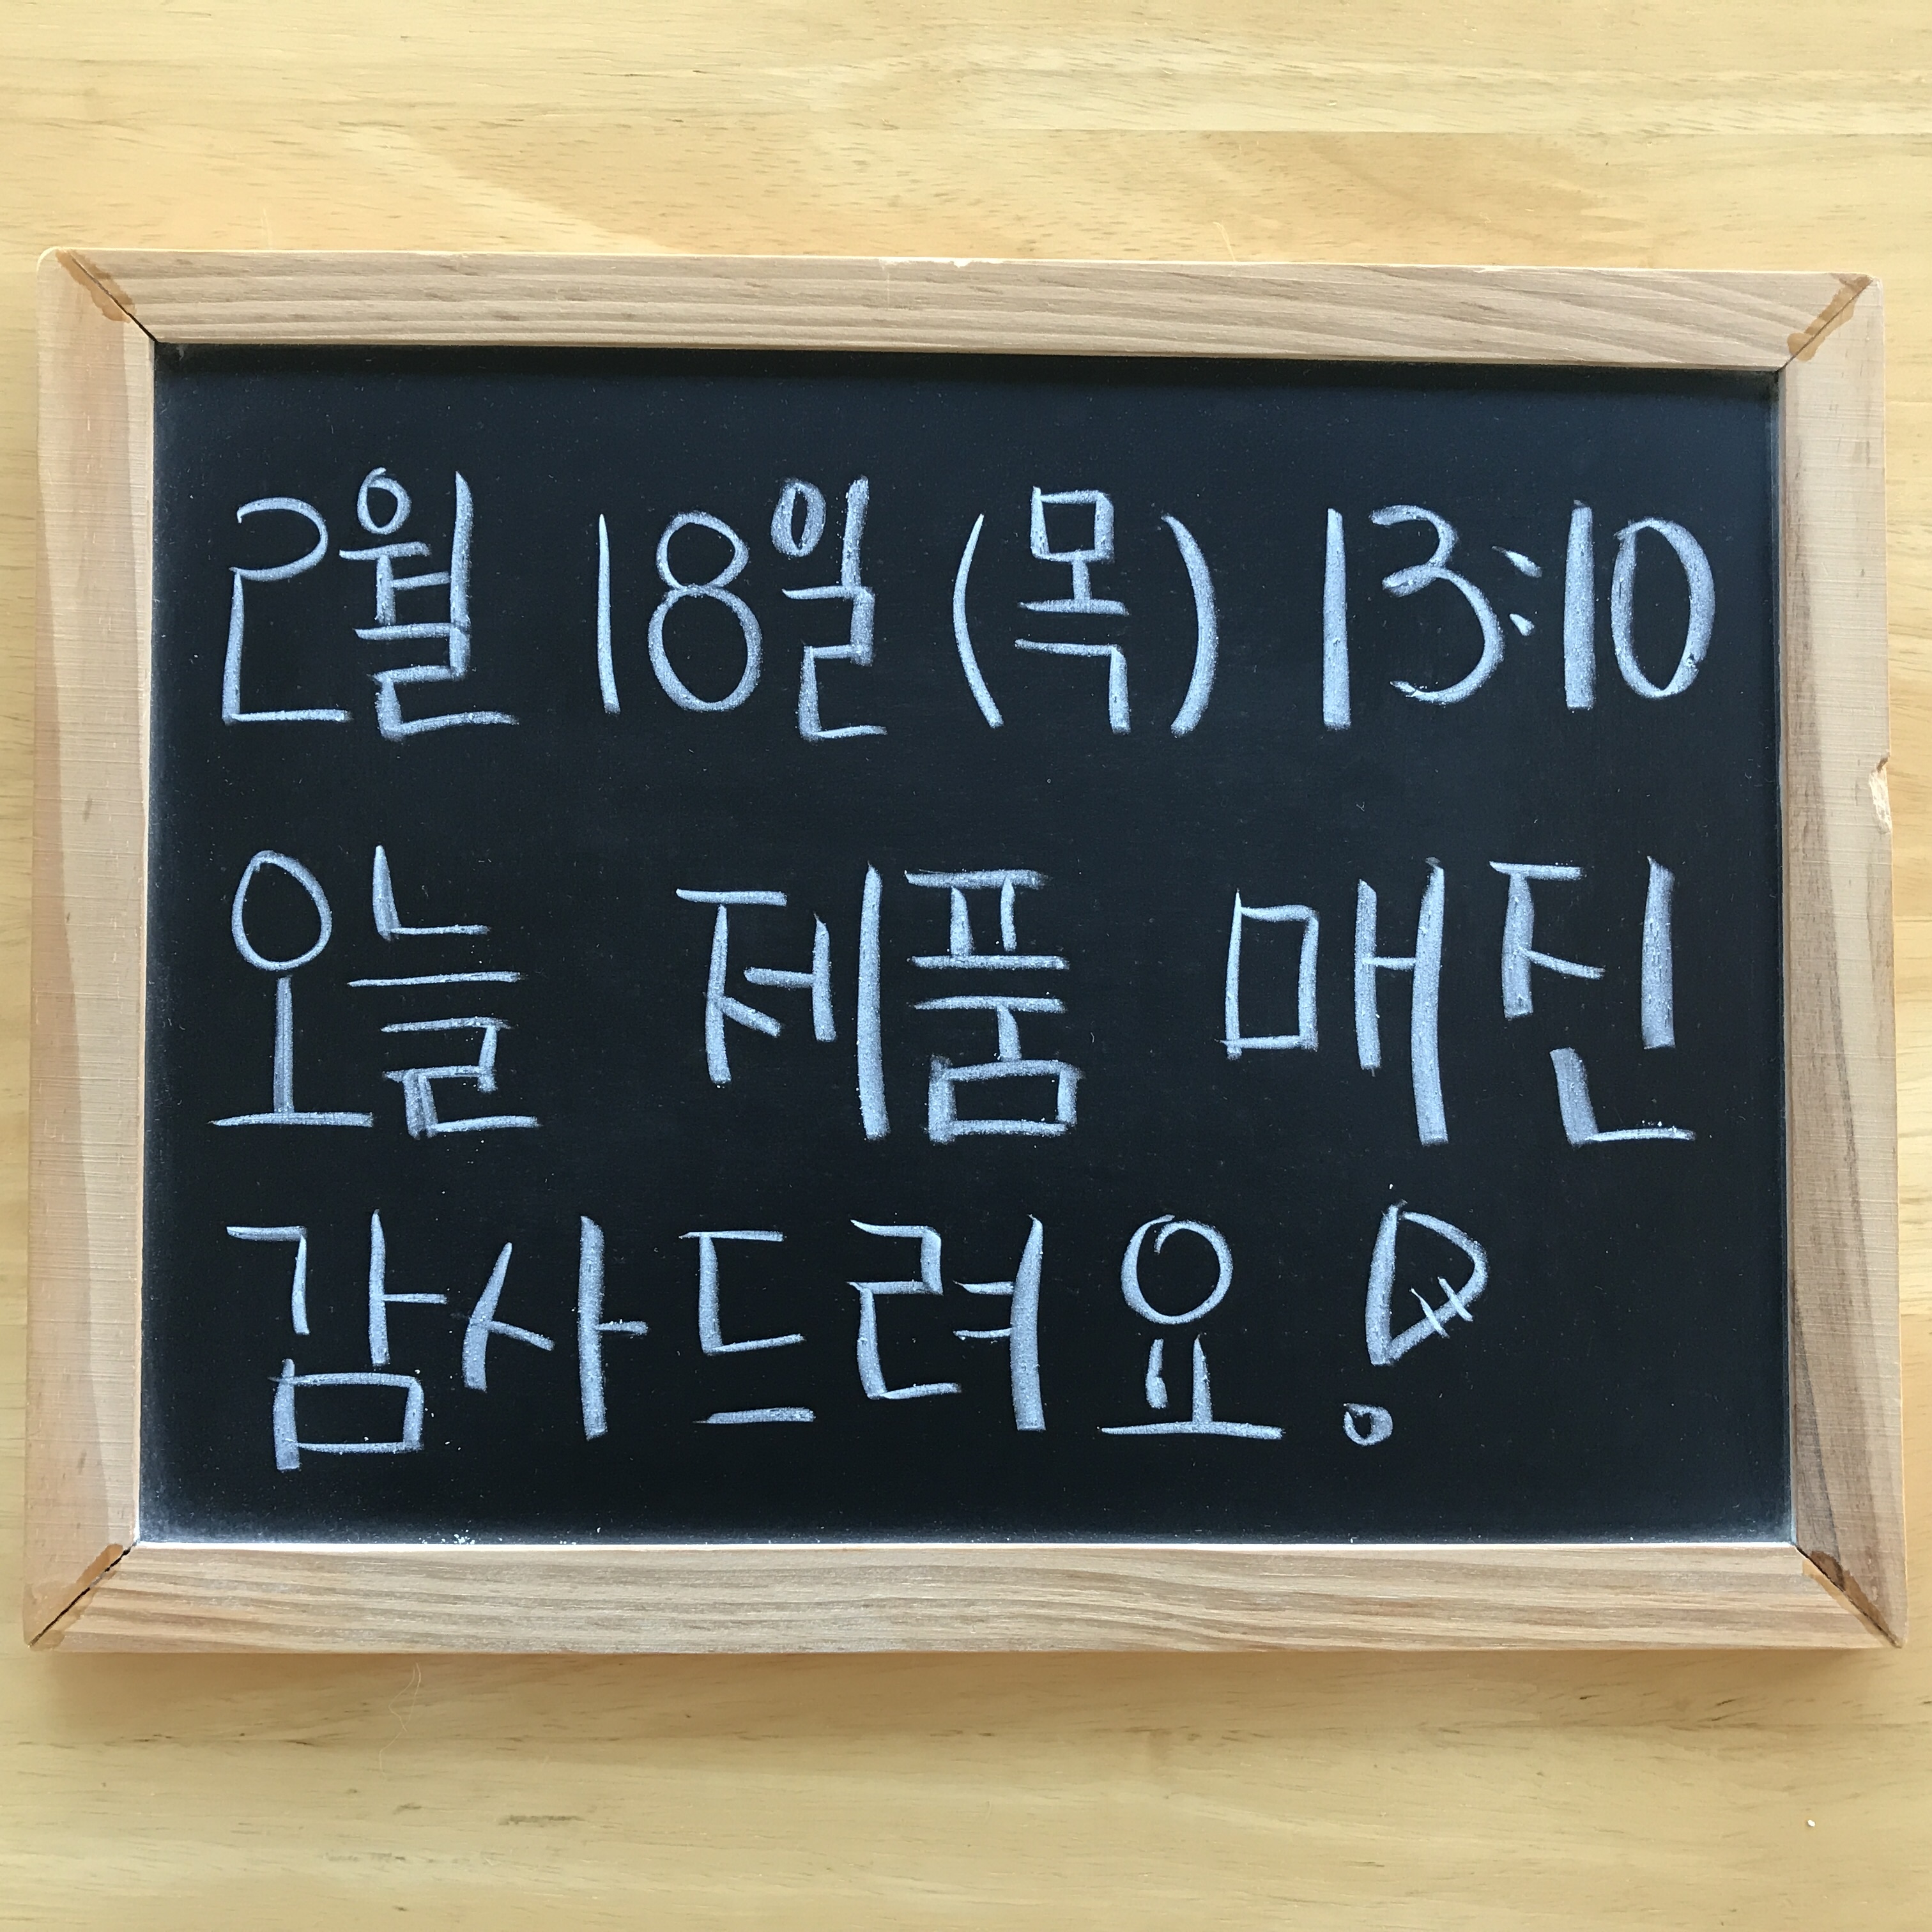 2월 18일 (목) 13:10
오늘 제품 매진
감사드려요!